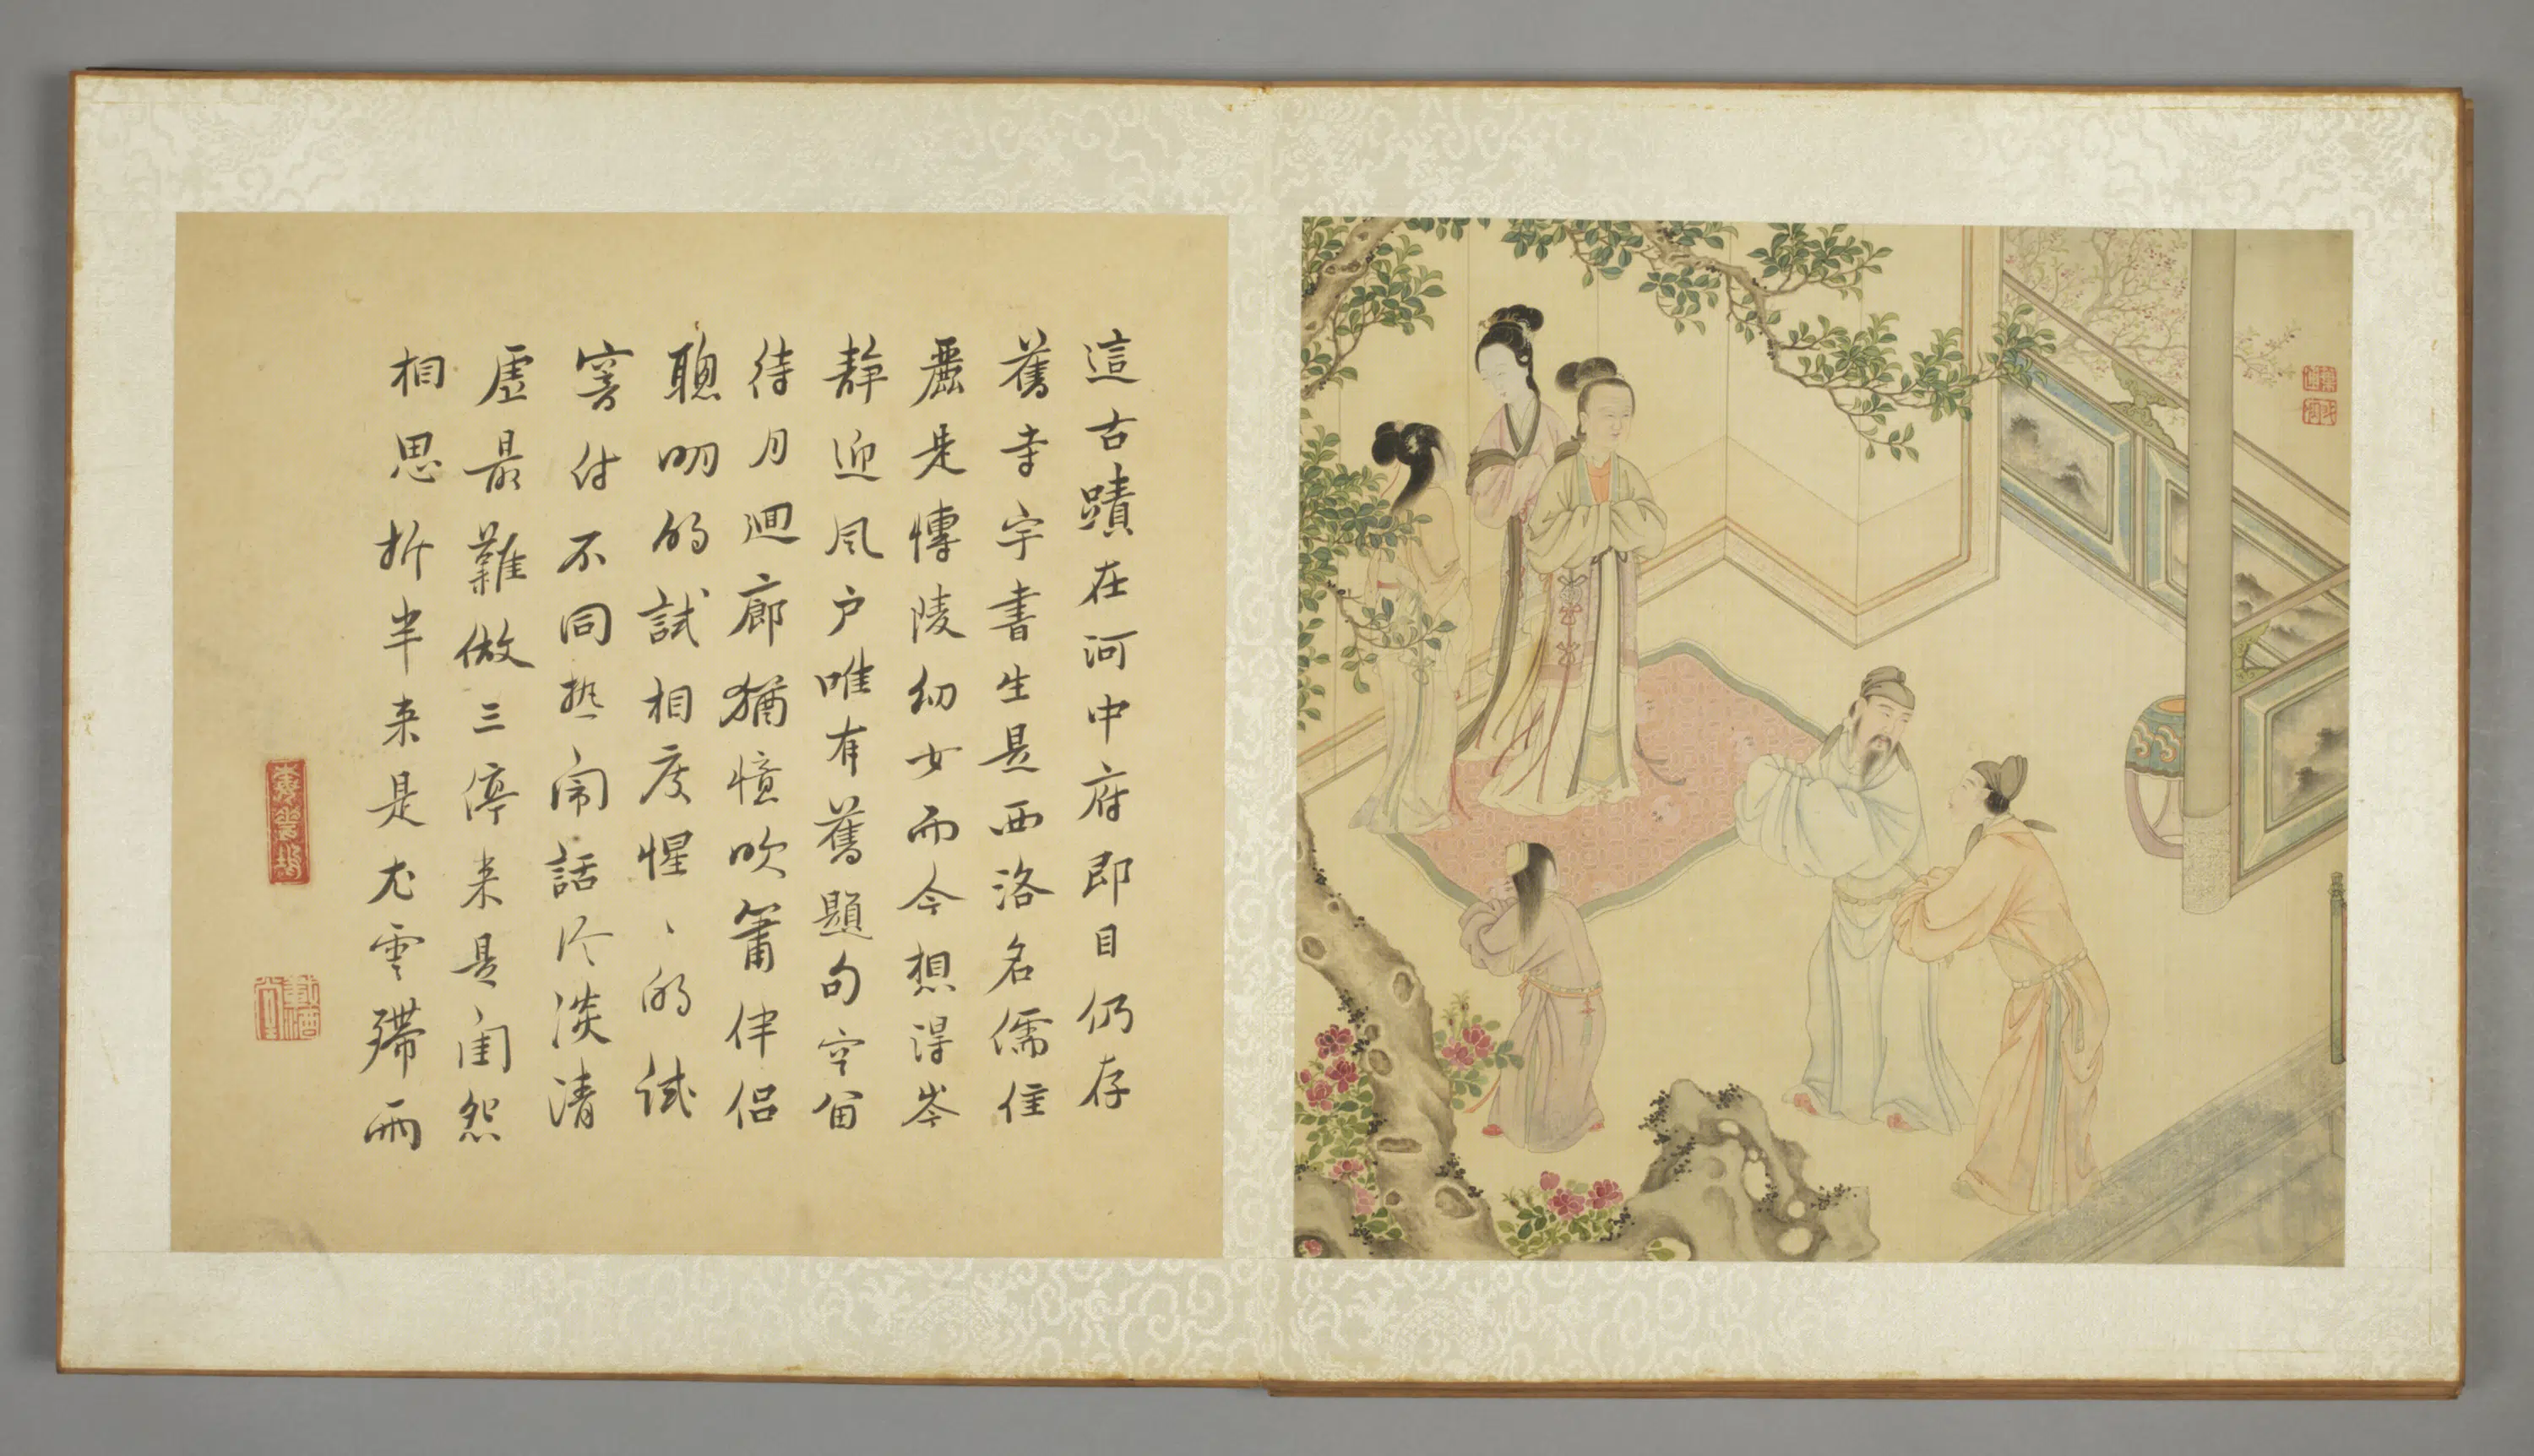 這古蹟在河中府即目仍存
舊寺宇書生是西洛名儒佳
麗是慱陵幼女而今想得岑
静迎风户唯有舊題句空留
待月迴廊猶憶吹簫伴侣
聰明的試相度惺、的試
窨付不同热闹話冷淡清
虚最難做三停来是閨怨
相思折半来是尤雲殢雨